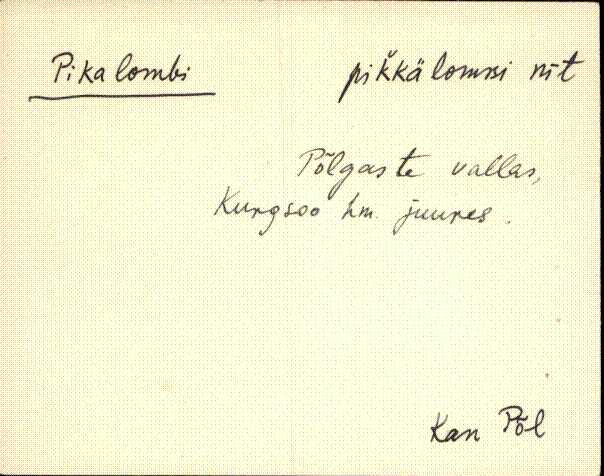 Pikalombi pik̆kälomʙi nīt
Põlgaste vallas,
Kurgsoo hm. juures.
Kan Põl